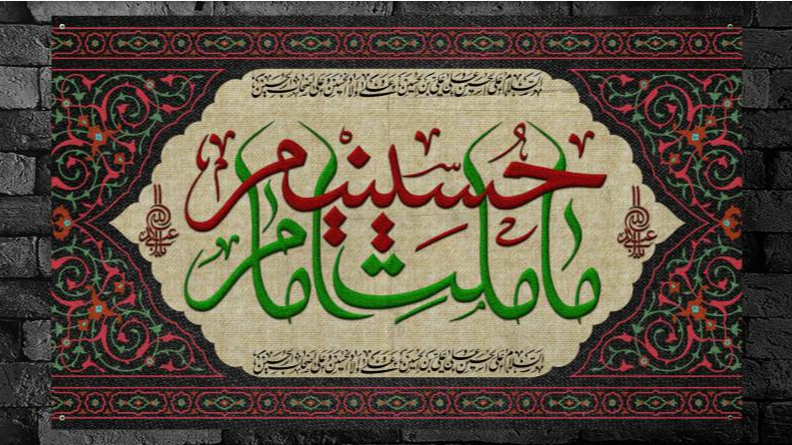 السلام علی الحسین و علی علی بن الحسین و علی اولاد الحسین و علی اصحاب الحسین
ما ملت امام
حسینیم
السلام علی الحسین و علی علی بن الحسین و علی اولاد الحسین و علی اصحاب الحسین